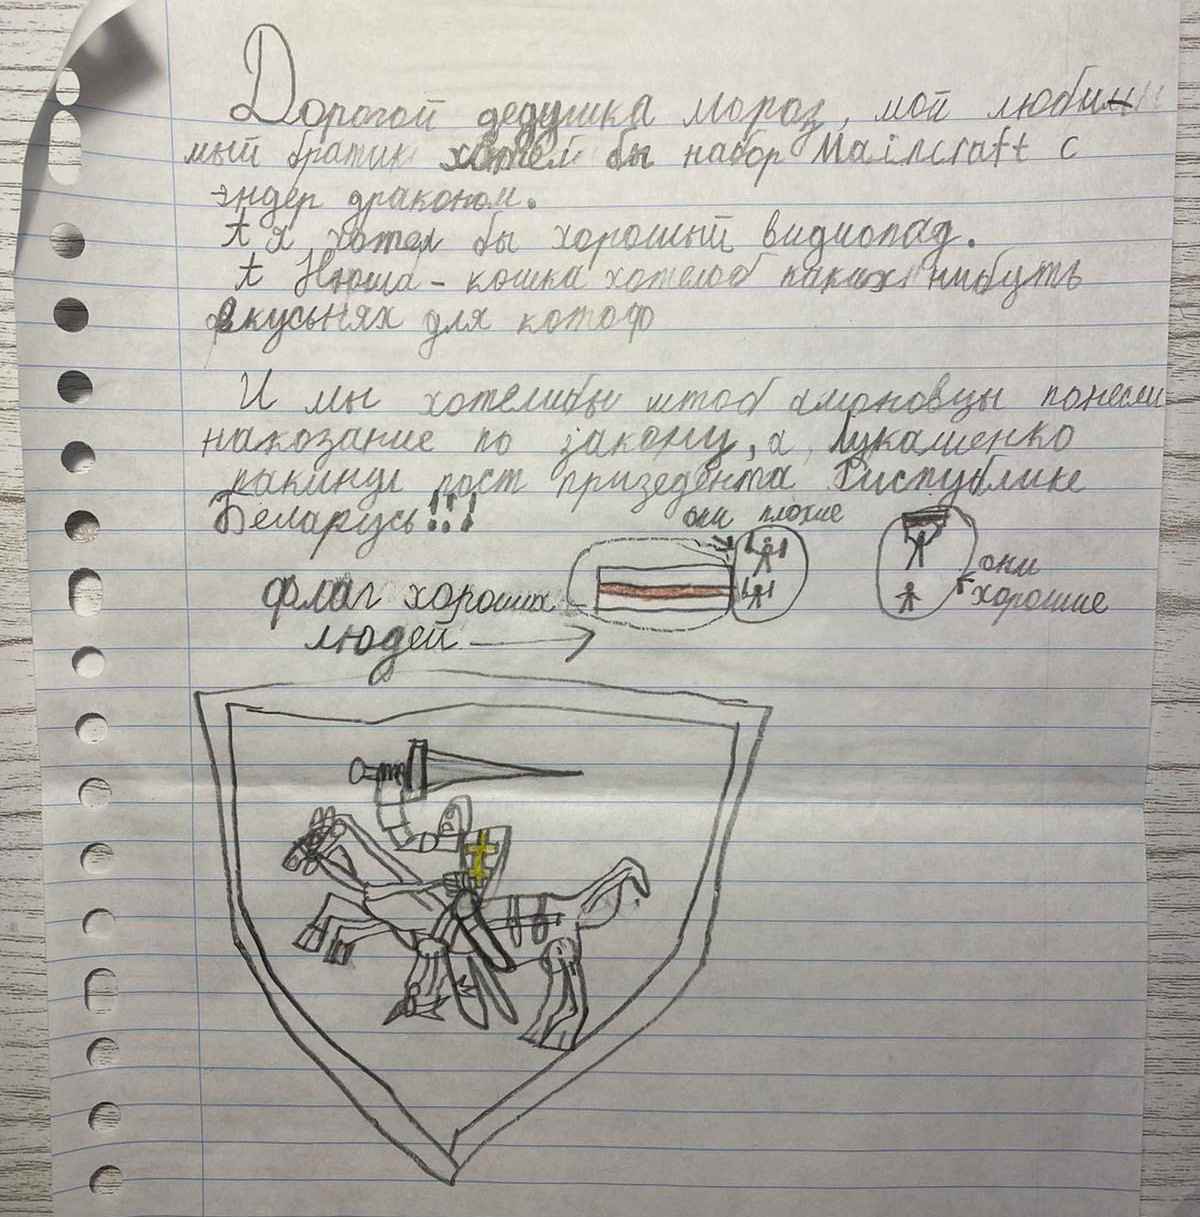 Дорогой дедушка мороз, мой любим
мый братик хотел бы набор Maincraft с
эндер драконом.
А я хотел бы хороший видиопад.
А Нюша - кошка хотелоб каких нибуть
вкусьнях для котоф
И мы хотелибы штоб амоновцы понесли
накозание по закону, а Лукашенко
пакинул пост призедента Риспублике
Беларусь!!!
они плохие
они
хорошие
флаг хороших
людей